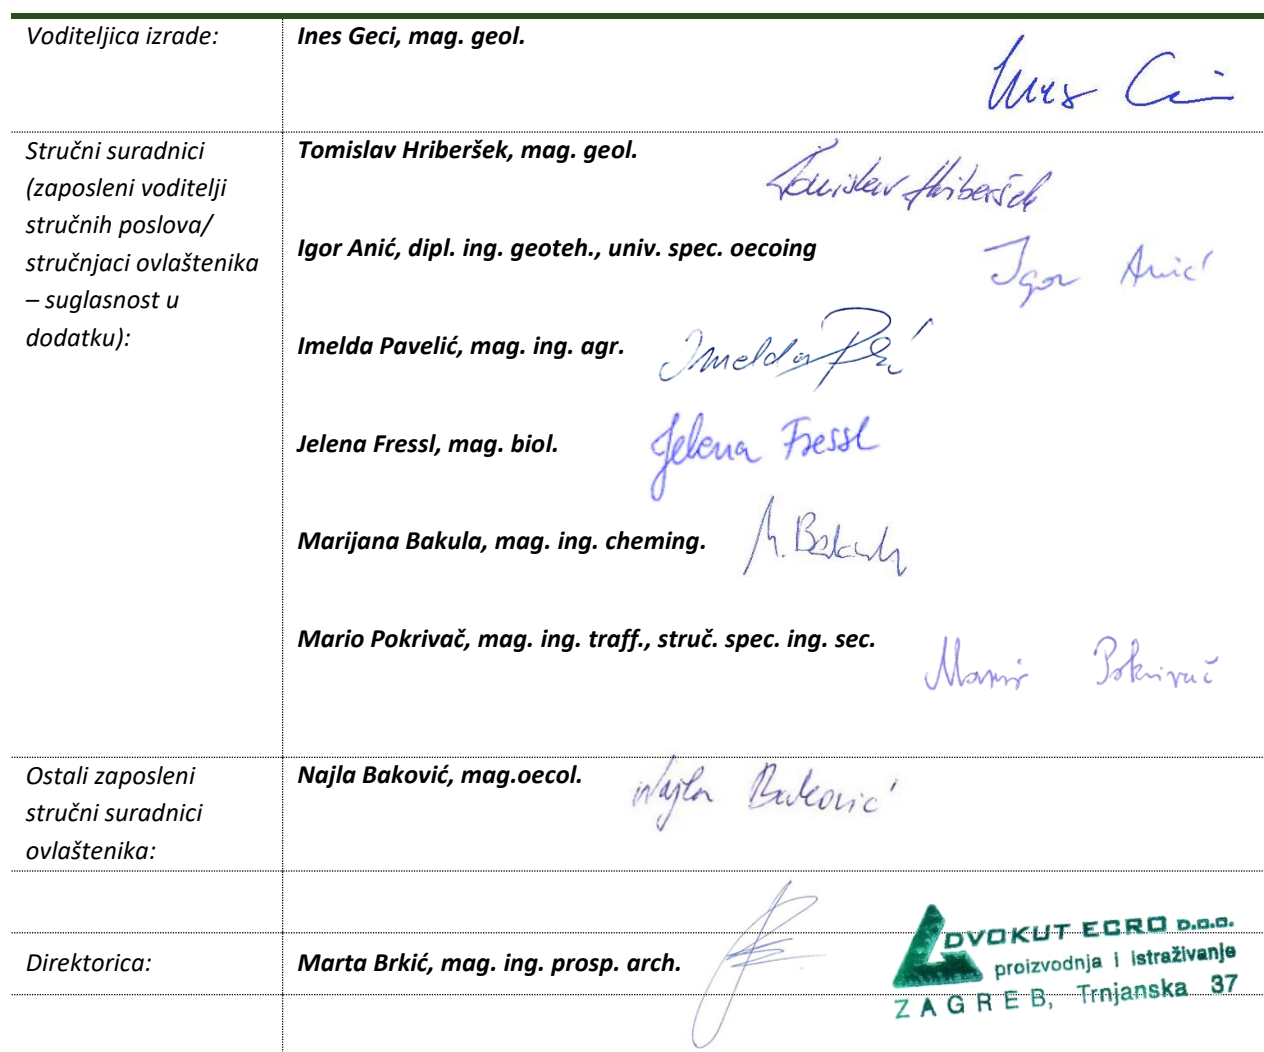 Voditeljica izrade:
Ines Geci, mag. geol.
Ines
Stručni suradnici
(zaposleni voditelji
stručnih poslova/
stručnjaci ovlaštenika
– suglasnost u
dodatku):
Tomislav Hriberšek, mag. geol.
Tomislav Hriberšek
Igor Anić, dipl. ing. geoteh., univ. spec. oecoing
Igor Anić
Imelda Pavelić, mag. ing. agr.
Imelda
Jelena Fressl, mag. biol.
Jelena Fressl
Marijana Bakula, mag. ing. cheming.
M. Bakula
Mario Pokrivač, mag. ing. traff., struč. spec. ing. sec.
Mario Pokrivač
Ostali zaposleni
stručni suradnici
ovlaštenika:
Najla Baković, mag.oecol.
Najla Baković
Direktorica:
Marta Brkić, mag. ing. prosp. arch.
DVOKUT ECRO D.O.O.
proizvodnja i istraživanje
ZAGREB, Trnjanska 37